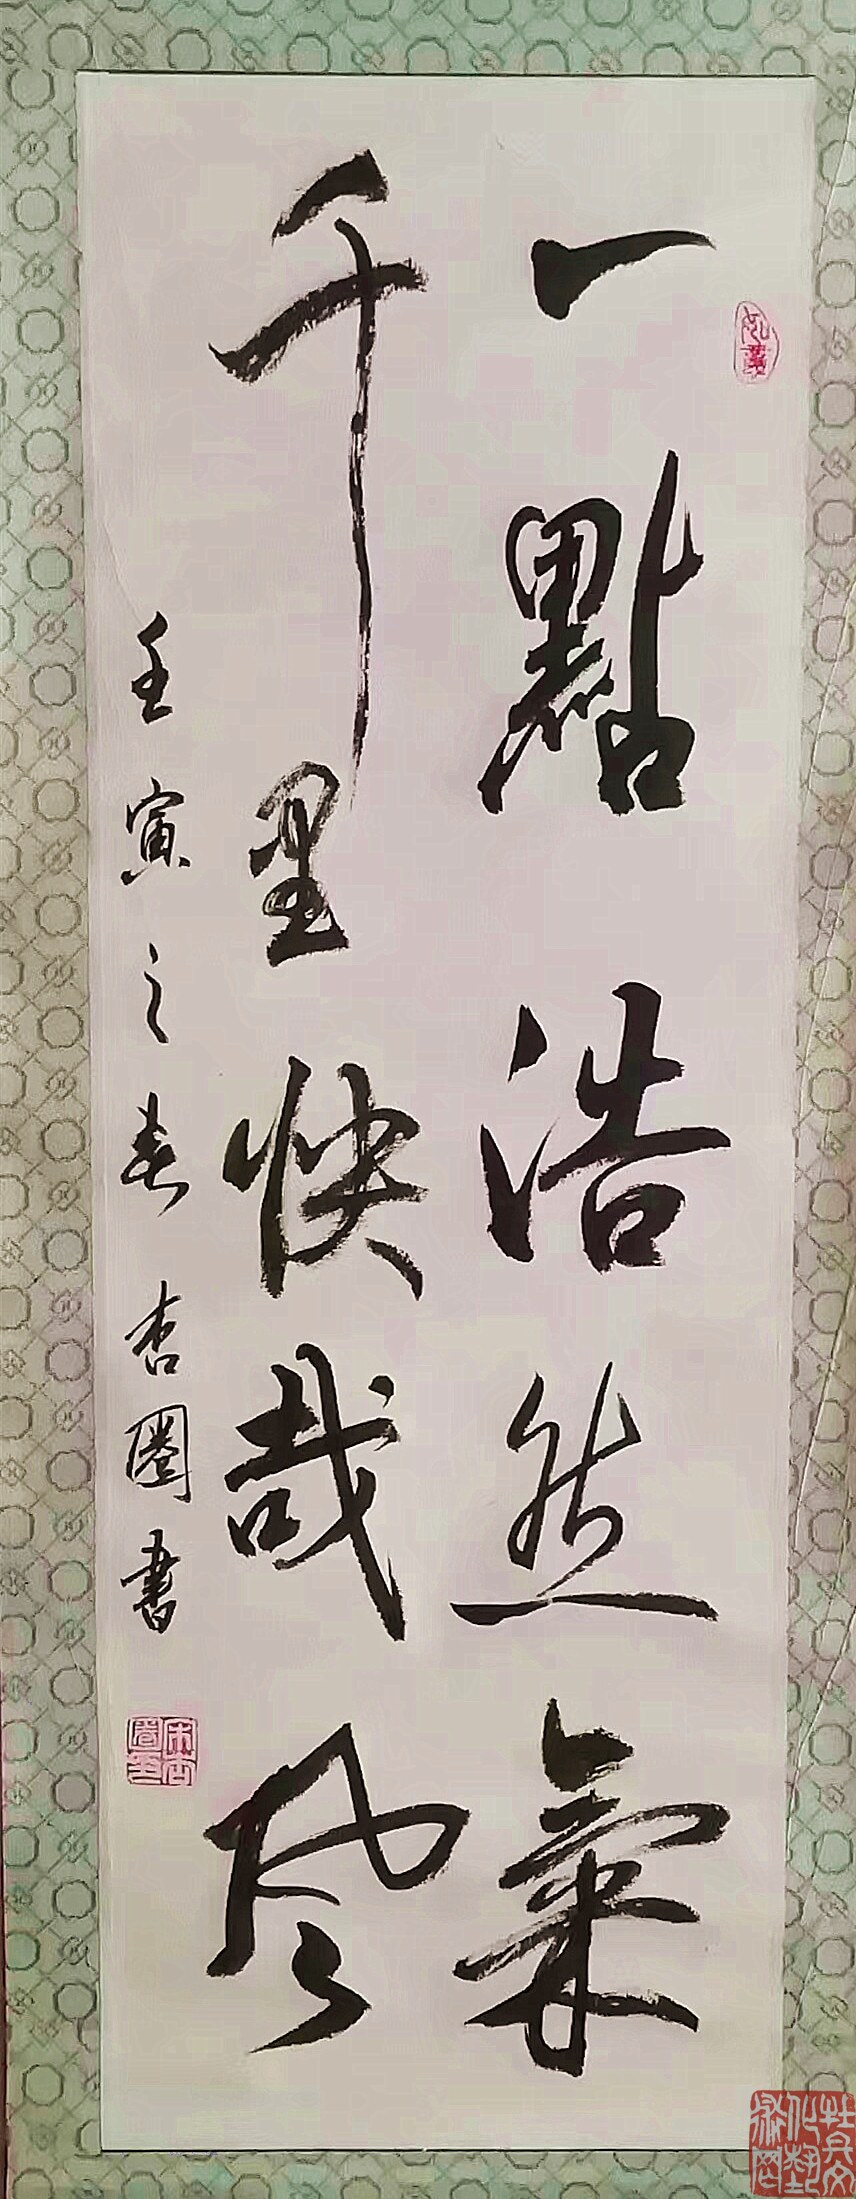 一點浩然氣
千里快哉风
壬寅之春杏圈書